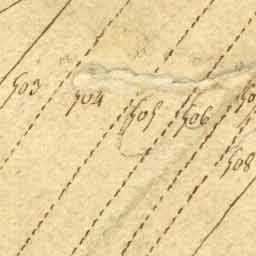 503
504
505
506
508